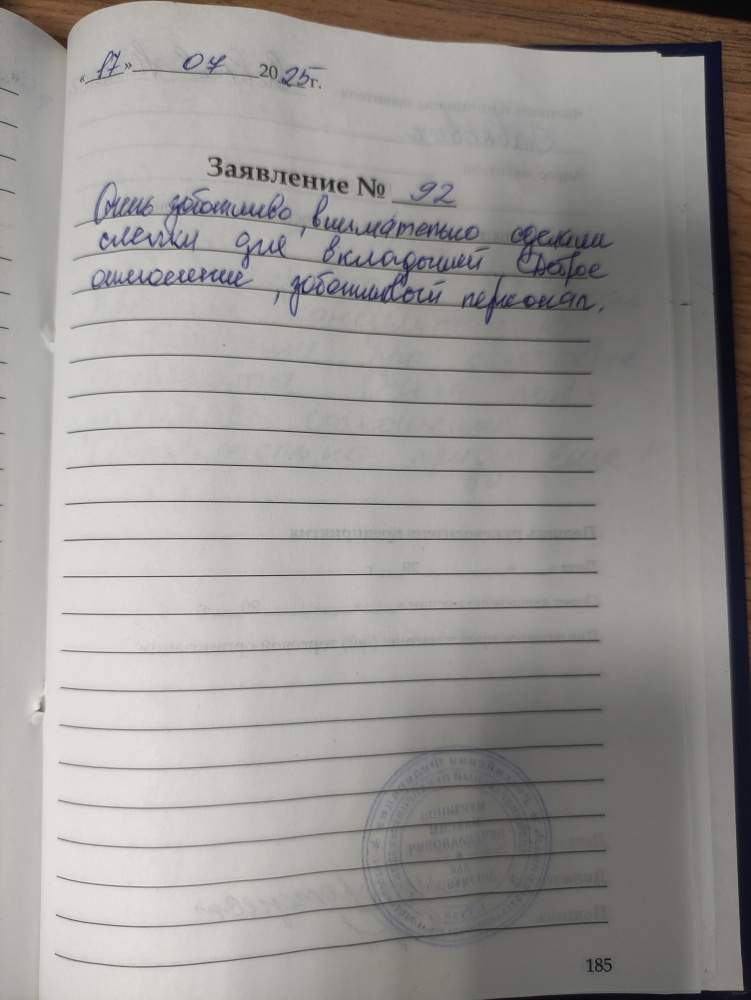 «17» 07 2025г.
Заявление № 92
Очень заботливо, внимательно сделали
слепки для вкладышей. Доброе
отношение, заботливый персонал.
185